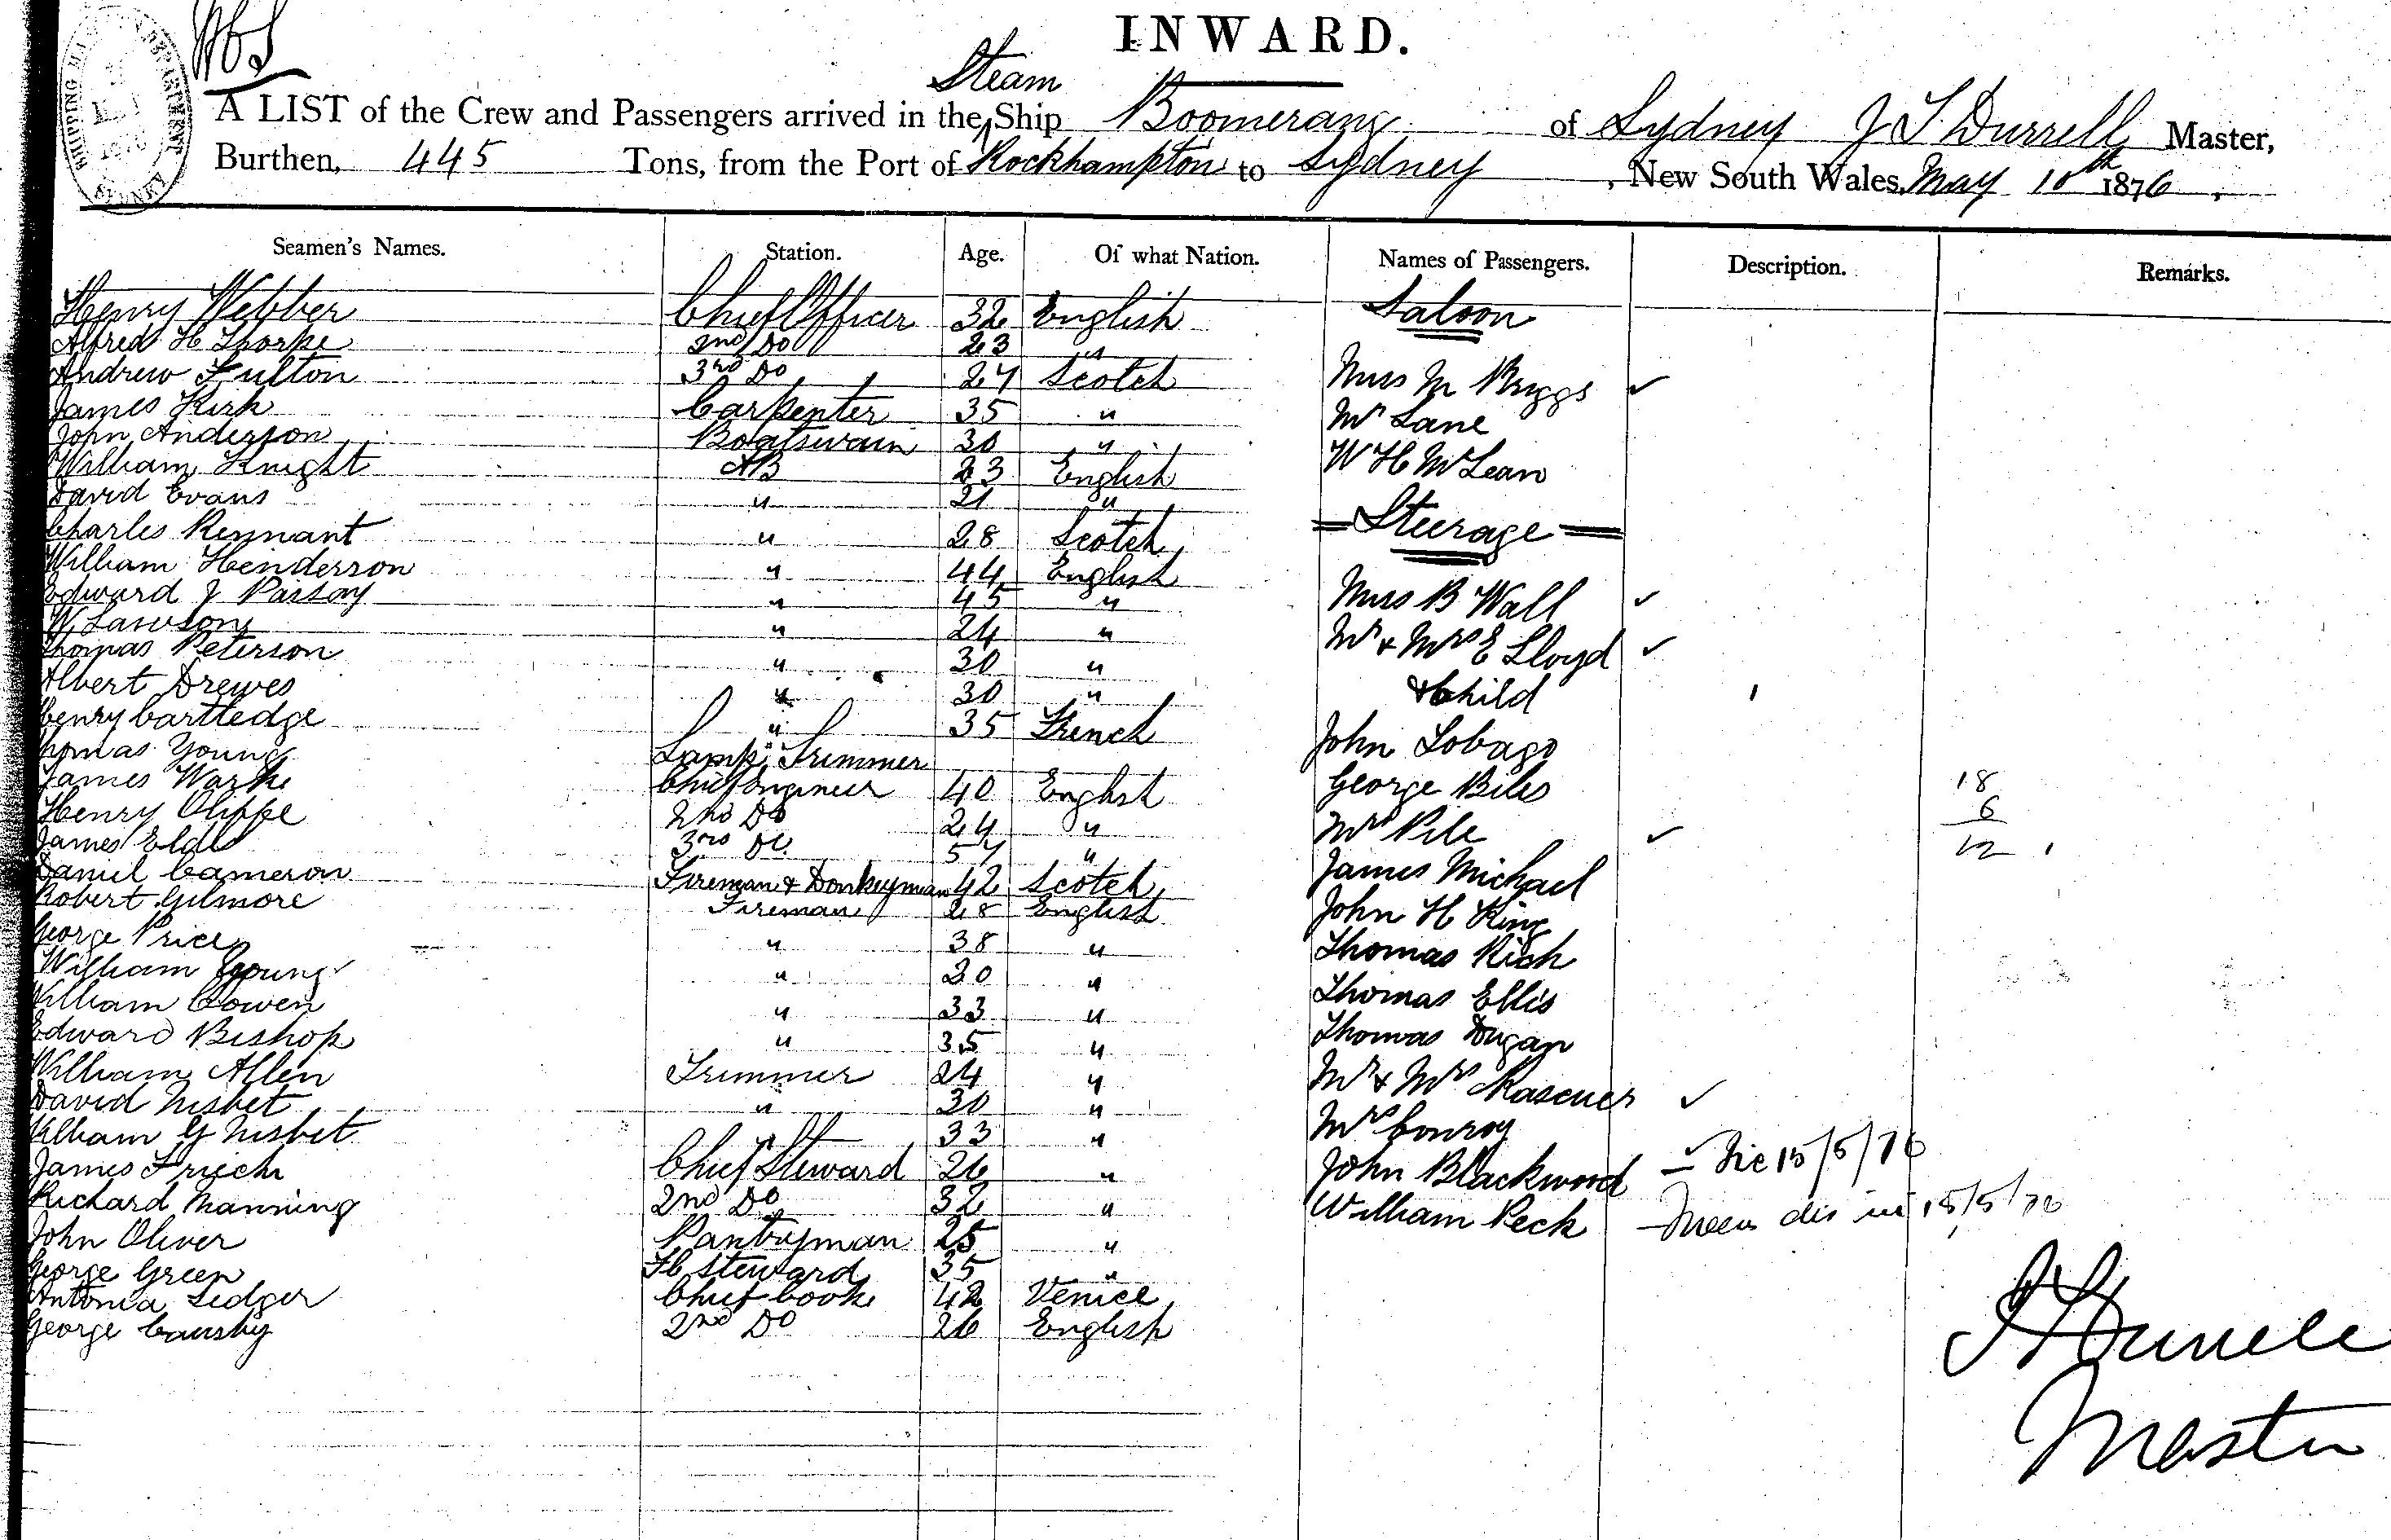 INWARD.
Steam
A LIST of the Crew and Passengers arrived in the Ship Boomerang of Sydney J S Durrell Master,
Burthen, 445 Tons, from the Port of Rockhampton to Sydney, New South Wales, May 10th 1876,
Seamen's Names. Station. Age. Of what Nation. Names of Passengers. Description. Remarks.
Henry Webber Chief Officer 32 English
Alfred H Thorpe 2nd Do 23 "
Andrew Fulton 3rd Do 27 Scotch
James Kirk Carpenter 35 "
John Anderson Boatswain 30 "
William Knight AB 23 English
David Evans " 21 "
Charles Rennant " 28 Scotch
William Henderson " 44 English
Edward J " 45 "
W Lawson " 24 "
Thomas Peterson " 30 "
Albert Drewes " 30 "
Henry Cartledge " 35 French
Thomas Young Lamp Trimmer
James Warke Chief Engineer 40 English
Henry 2nd Do 24 "
James 3rd Do 57 "
Daniel Cameron Fireman & Donkeyman 42 Scotch
Robert Gilmore Fireman 28 English
George Price " 38 "
William Young " 20 "
William Cowen " 33 "
Edward Bishop " 35 "
William Allen Trimmer 24 "
David Nisbet " 30 "
William G Nisbet " 33 "
James Chief Steward 26 "
Richard Manning 2nd Do 32 "
John Oliver Pantryman 25 "
George Green Steward 35 "
Antonia Ledger Chief Cook 42 Venice
George 2nd Do 26 English
Saloon
Miss M Briggs
Mr Lane
W H McLean
Steerage
Miss B Wall
Mr & Mrs E Lloyd
& Child
John Lobago
George Biles
Mrs Pile
James Michael
John H King
Thomas Rich
Thomas Ellis
Thomas Dugan
Mr & Mrs
Mrs Conroy
John Blackwood 15/5/76
William Peck 15/5/76
18
6
12
J S Durrell
Master